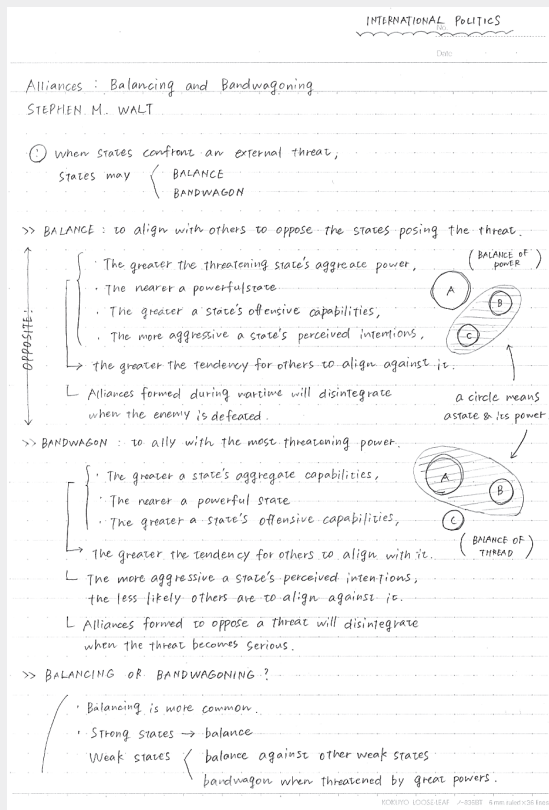 INTERNATIONAL POLITICS
No.
Date
Alliances : Balancing and Bandwagoning
STEPHEN M. WALT
! When states confront an external threat,
states may
BALANCE
BANDWAGON
>> BALANCE : to align with others to oppose the states posing the threat.
OPPOSITE!
· The greater the threatening state's aggreate power,
· The nearer a powerful state
· The greater a state's offensive capabilities,
· The more aggressive a state's perceived intentions,
→ the greater the tendency for others to align against it.
└ Alliances formed during wartime will disintegrate
when the enemy is defeated.
(BALANCE OF
POWER)
A
B
C
a circle means
a state & its power
>> BANDWAGON : to ally with the most threatening power.
· The greater a state's aggregate capabilities,
· The nearer a powerful state
· The greater a state's offensive capabilities,
→ the greater the tendency for others to align with it.
└ The more aggressive a state's perceived intentions,
the less likely others are to align against it.
└ Alliances formed to oppose a threat will disintegrate
when the threat becomes serious.
A
B
C
(BALANCE OF
THREAD)
>> BALANCING OR BANDWAGONING?
· Balancing is more common.
· Strong states → balance
Weak states
balance against other weak states
bandwagon when threatened by great powers.
KOKUYO LOOSE-LEAF